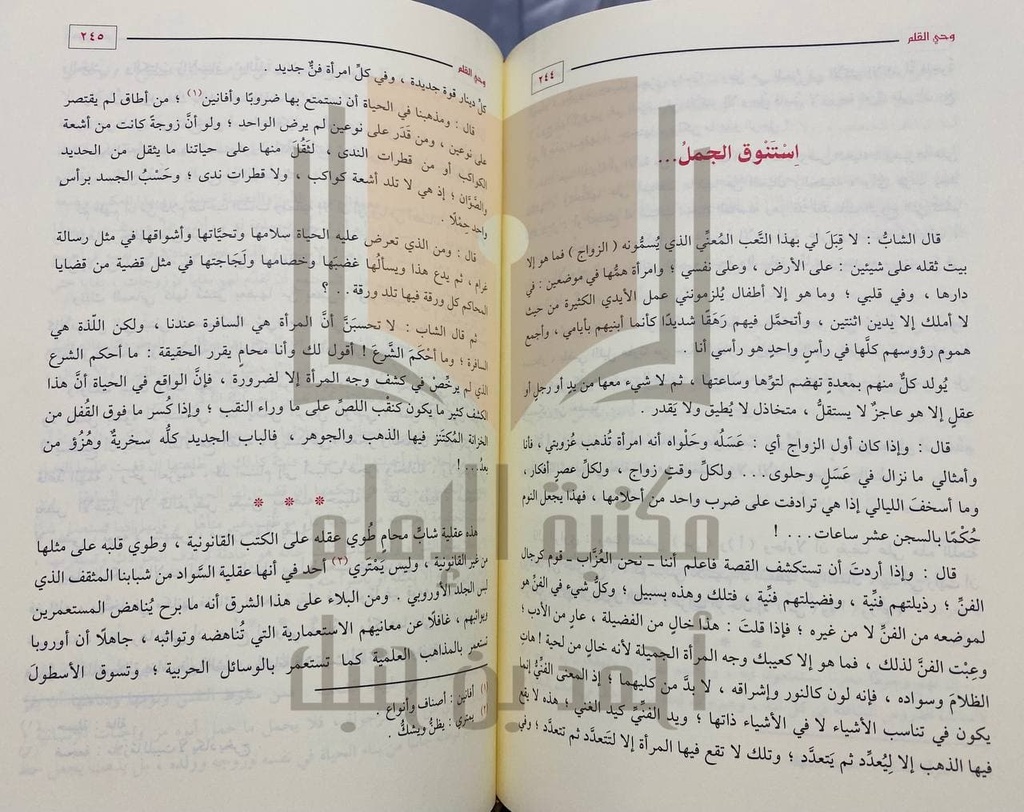 وحي القلم
٢٤٤
اسْتَنْوق الجملُ...
قال الشابُّ : لا قِبَلَ لي بهذا التَّعب المُعنِّي الذي يُسمُّونه ( الزواج ) فما هو إلا
بيت ثقله على شيئين : على الأرض ، وعلى نفسي ؛ وامرأة همُّها في موضعين : في
دارها ، وفي قلبي ؛ وما هو إلا أطفال يُلزمونني عمل الأيدي الكثيرة من حيث
لا أملك إلا يدين اثنتين ، وأتحمَّل فيهم رَهَقًا شديدًا كأنما أبنيهم بأيامي ، وأجمع
هموم رؤوسهم كلَّها في رأسٍ واحدٍ هو رأسي أنا .
يُولد كلٌّ منهم بمعدةٍ تهضم لتوِّها وساعتها ، ثم لا شيء معها من يدٍ أو رجلٍ أو
عقلٍ إلا هو عاجزٌ لا يستقلُّ ، متخاذل لا يُطيق ولا يَقدر .
قال : وإذا كان أول الزواج أي : عَسَلُه وحَلْواه أنه امرأة تُذهب عُزوبتي ، فأنا
وأمثالي ما نزال في عَسَلٍ وحلوى... ولكلِّ وقتٍ زواج ، ولكلِّ عصرٍ أفكار ،
وما أسخفَ الليالي إذا هي ترادفت على ضرب واحد من أحلامها ، فهذا يجعل النوم
حُكْمًا بالسجن عشر ساعات... !
قال : وإذا أردتَ أن تستكشف القصة فاعلم أننا ـ نحن العُزَّاب ـ قوم كرجال
الفنِّ ؛ رذيلتهم فنِّية ، وفضيلتهم فنِّية ، فتلك وهذه بسبيل ؛ وكلُّ شيء في الفنِّ هو
لموضعه من الفنِّ لا من غيره ؛ فإذا قلتَ : هذا خالٍ من الفضيلة ، عارٍ من الأدب ؛
وعِبْت الفنَّ لذلك ، فما هو إلا كعيبك وجه المرأة الجميلة لأنه خالٍ من لحية ! هاتِ
الظلامَ وسواده ، فإنه لون كالنور وإشراقه ، لا بدَّ من كليهما ؛ إذ المعنى الفنِّيُّ إنما
يكون في تناسب الأشياء لا في الأشياء ذاتها ؛ ويد الفنِّيِّ كيد الغني ؛ هذه لا يقع
فيها الذهب إلا ليُعدِّد ثم يَتعدَّد ؛ وتلك لا تقع فيها المرأة إلا لتتعدَّد ثم تتعدد ؛ وفي
وحي القلم
٢٤٥
كلِّ دينار قوة جديدة ، وفي كلِّ امرأة فنٌّ جديد .
قال : ومذهبنا في الحياة أن نستمتع بها ضروبًا وأفانين(١) ؛ من أطاق لم يقتصر
على نوعين ، ومن قدَر على نوعين لم يرض الواحد ؛ ولو أنَّ زوجةً كانت من أشعة
الكواكب أو من قطرات الندى ، لثقُلَ منها على حياتنا ما يثقل من الحديد
والصَّوَّان ؛ إذ هي لا تلد أشعة كواكب ، ولا قطرات ندى ؛ وحَسْبُ الجسد برأسٍ
واحدٍ حِمْلًا .
قال : ومن الذي تعرض عليه الحياة سلامها وتحيَّاتها وأشواقها في مثل رسالة
غرام ، ثم يدع هذا ويسألُها غضبَها وخصامها ولَجَاجتها في مثل قضية من قضايا
المحاكم كل ورقة فيها تلد ورقة.. ؟
ثم قال الشاب : لا تحسبَنَّ أنَّ المرأة هي السافرة عندنا ، ولكن اللّذة هي
السافرة ؛ وما أحْكَمَ الشَّرعَ ! أقول لك وأنا محامٍ يقرر الحقيقة : ما أحكم الشرع
الذي لم يرخِّصْ في كشف وجه المرأة إلا لضرورة ، فإنَّ الواقع في الحياة أنَّ هذا
الكشف كثير ما يكون كنقْب اللصِّ على ما وراء النقب ؛ وإذا كُسر ما فوق القُفل من
الخزانة المُكتَنز فيها الذهب والجوهر ، فالباب الجديد كلُّه سخريةٌ وهُزُؤ من
بعدُ... !
* * *
هذه عقلية شابٍّ محامٍ طُوي عقله على الكتب القانونية ، وطوي قلبه على مثلها
من غير القانونية ، وليس يَمْتري(٢) أحد في أنها عقلية السَّواد من شبابنا المثقف الذي
لبس الجلد الأوروبي . ومن البلاء على هذا الشرق أنه ما برح يُناهض المستعمرين
ويواثبهم ، غافلًا عن معانيهم الاستعمارية التي تُناهضه وتواثبه ، جاهلًا أن أوروبا
تستعمر بالمذاهب العلمية كما تستعمر بالوسائل الحربية ؛ وتسوق الأسطولَ
(١) أفانين : أصناف وأنواع .
(٢) يمتري : يظنُّ ويشكُّ .
مكتبة الإمام
أحمد بن حنبل